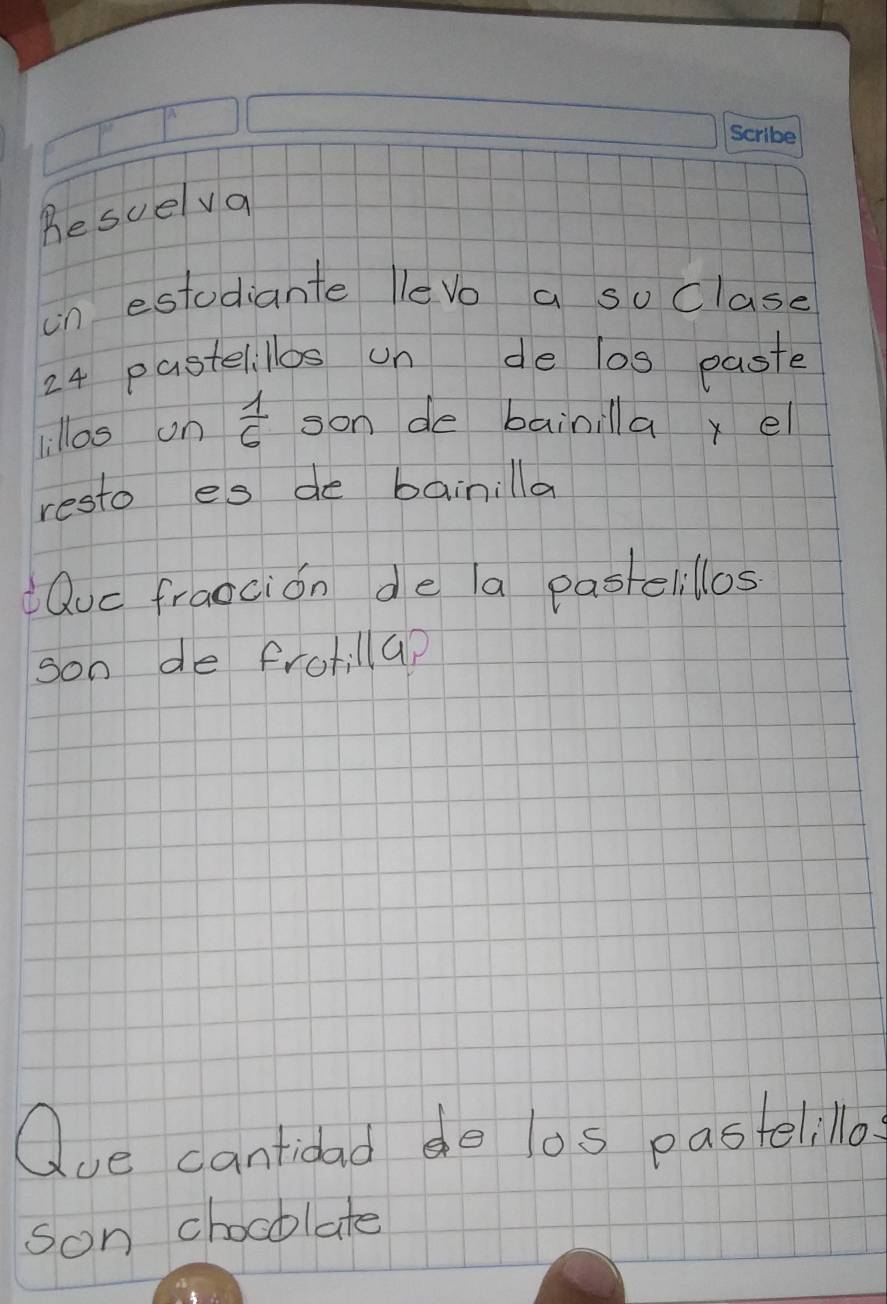 Scribe
Resuelva
un estudiante llevo a su Clase
24 pastelillos un de los paste
lillos un 1/6 son de bainilla y el
resto es de bainilla
¿Que fracción de la pastelillos
son de frotilla?
Que cantidad de los pastelillos
son chocolate